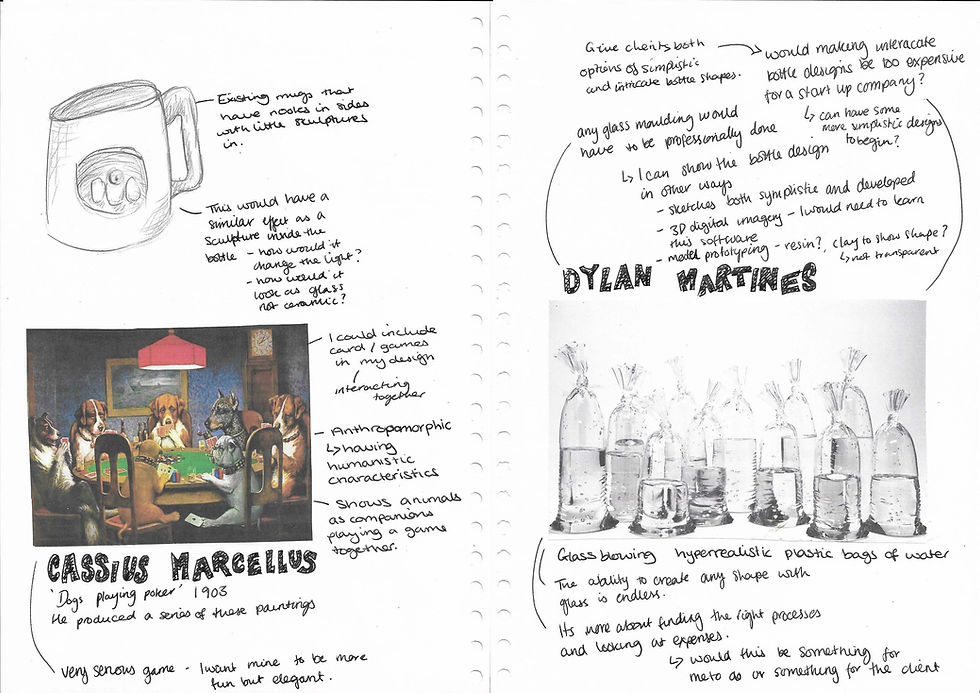 Existing mugs that
have nooks in sides
with little sculptures
in.
This would have a
similar effect as a
sculpture inside the
bottle - how would it
change the light?
- how would it
look as glass
not ceramic?
I could include
card / games
in my design
interacting
together
Anthropomorphic
↳ having
humanistic
characteristics
Shows animals
as companions
playing a game
together.
CASSIUS MARCELLUS
'Dogs playing poker' 1903
He produced a series of these paintings
Very serious game - I want mine to be more
fun but elegant.
Give clients both
options of simplistic
and intricate bottle shapes.
would making interacate
bottle designs be too expensive
for a start up company?
↳ can have some
more simplistic designs
to begin?
any glass moulding would
have to be professionally done
↳ I can show the bottle design
in other ways
- sketches both symplistic and developed
- 3D digital imagery - I would need to learn
this software
- model prototyping - resin?, clay to show shape?
↳ not transparent
DYLAN MARTINES
Glass blowing hyperrealistic plastic bags of water
The ability to create any shape with
glass is endless.
Its more about finding the right processes
and looking at expenses.
↳ would this be something for
me to do or something for the client